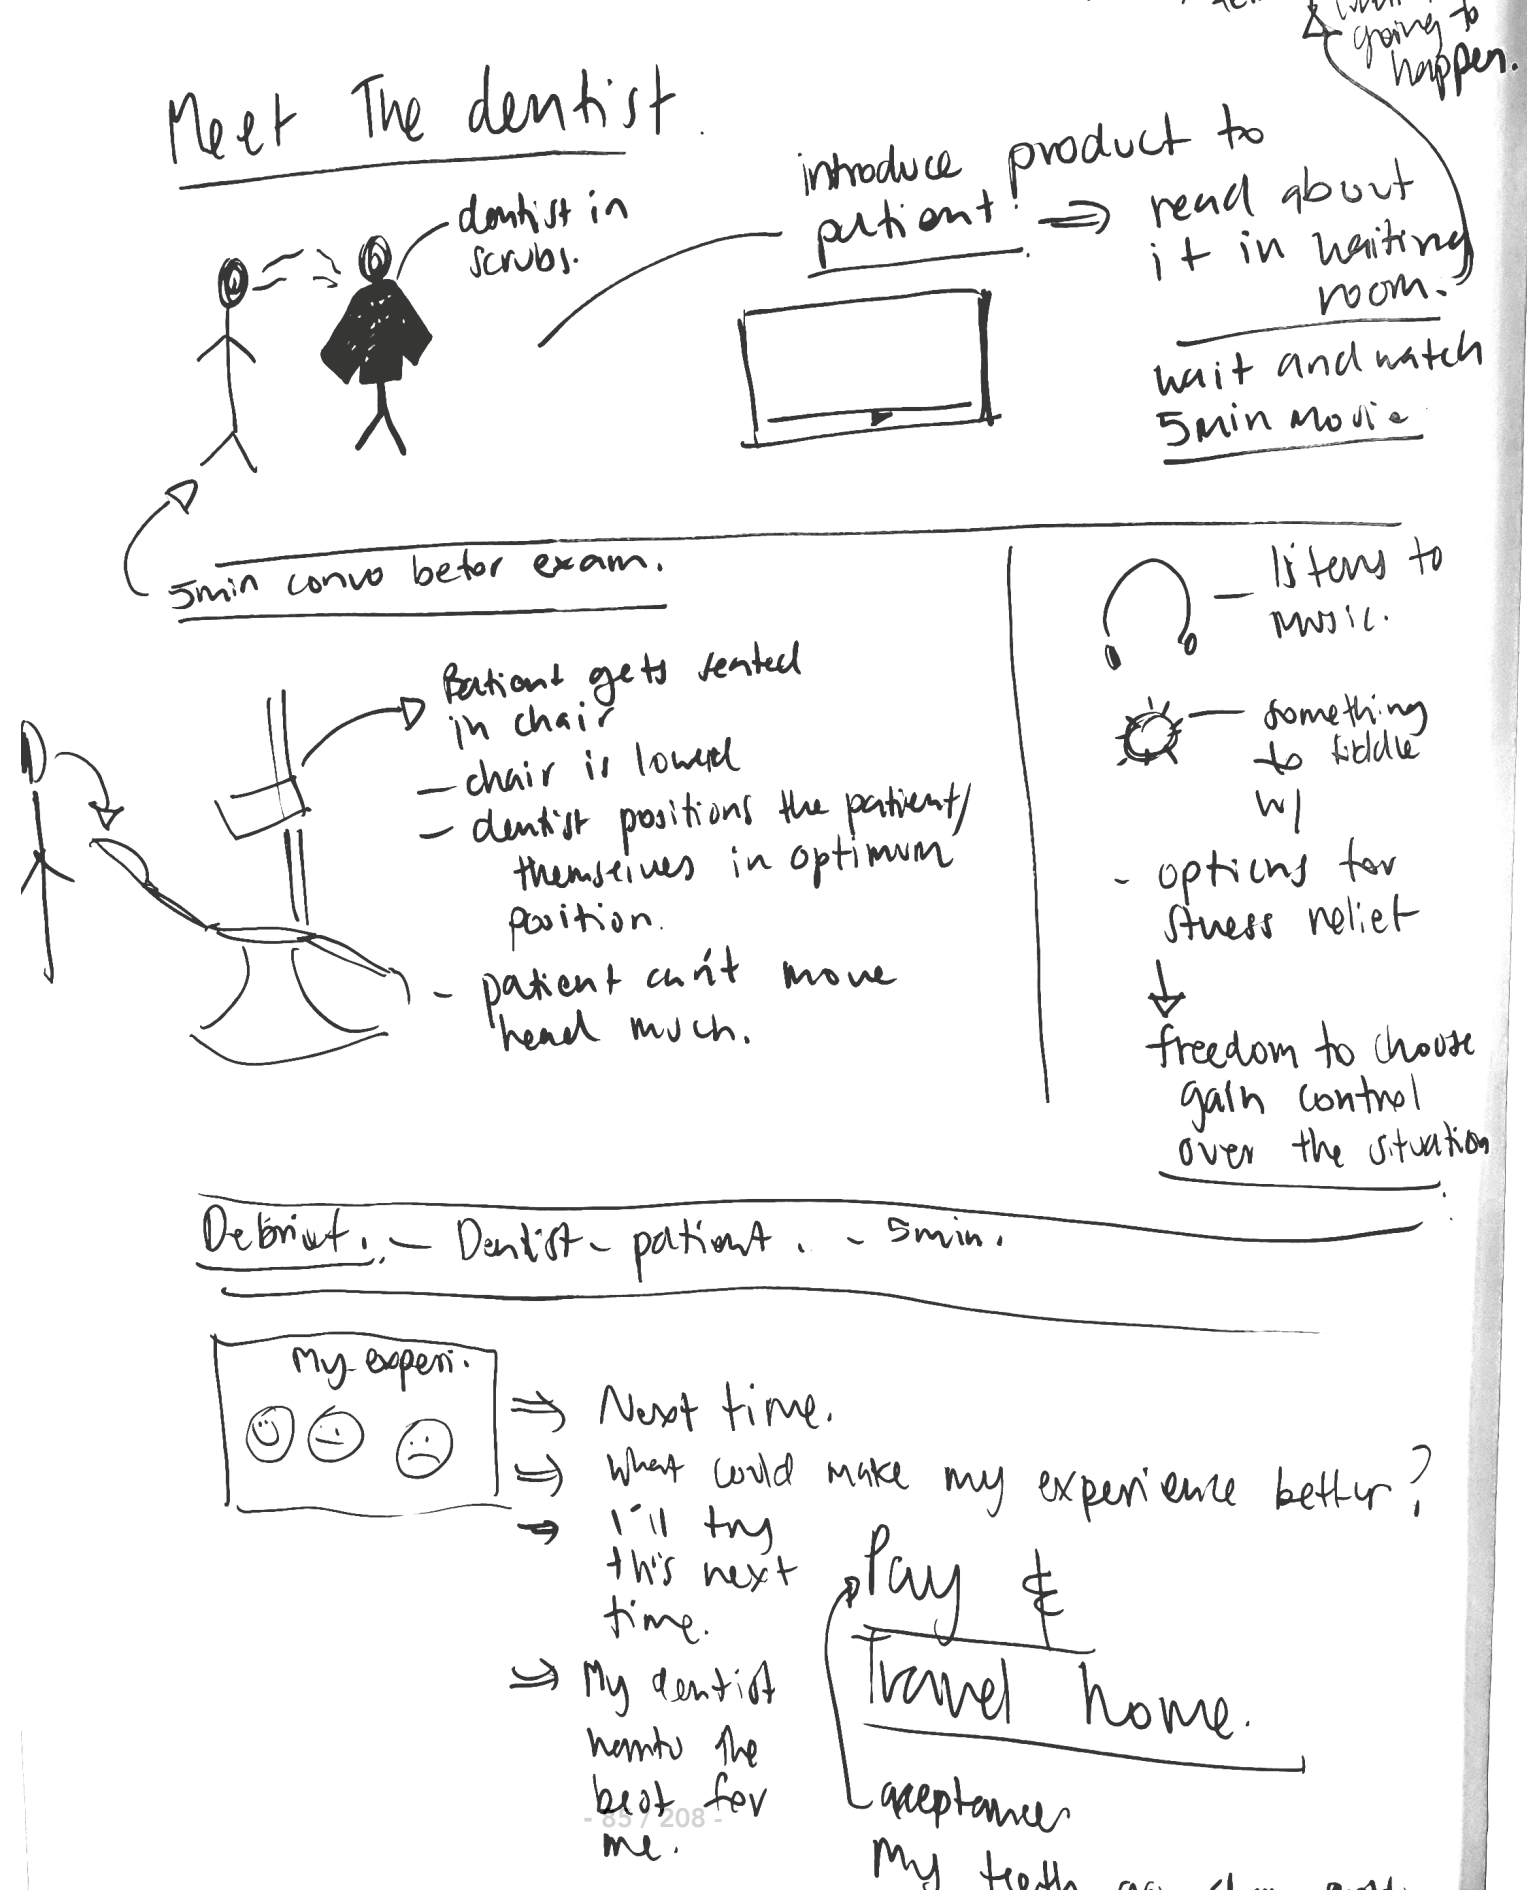 going to
happen.
Meet The dentist.
dentist in
scrubs.
introduce product to
patient!
read about
it in waiting
room.
wait and watch
5min Movie
5min convo befor exam.
Patient gets seated
in chair
- chair is lowerd
- dentist positions the patient/
themselves in optimum
position.
- patient can't move
head much.
- listens to
music.
- something
to fiddle
w/
- options for
stress relief
freedom to choose
gain control
over the situation
Debrief. - Dentist - patient. - 5min.
My experi.
⇒ Next time.
⇒ What could make my experience better?
⇒ I'll try
this next
time.
⇒ My dentist
wants the
best for
me.
Pay &
Travel home.
acceptance
My teeth
- 85 / 208 -